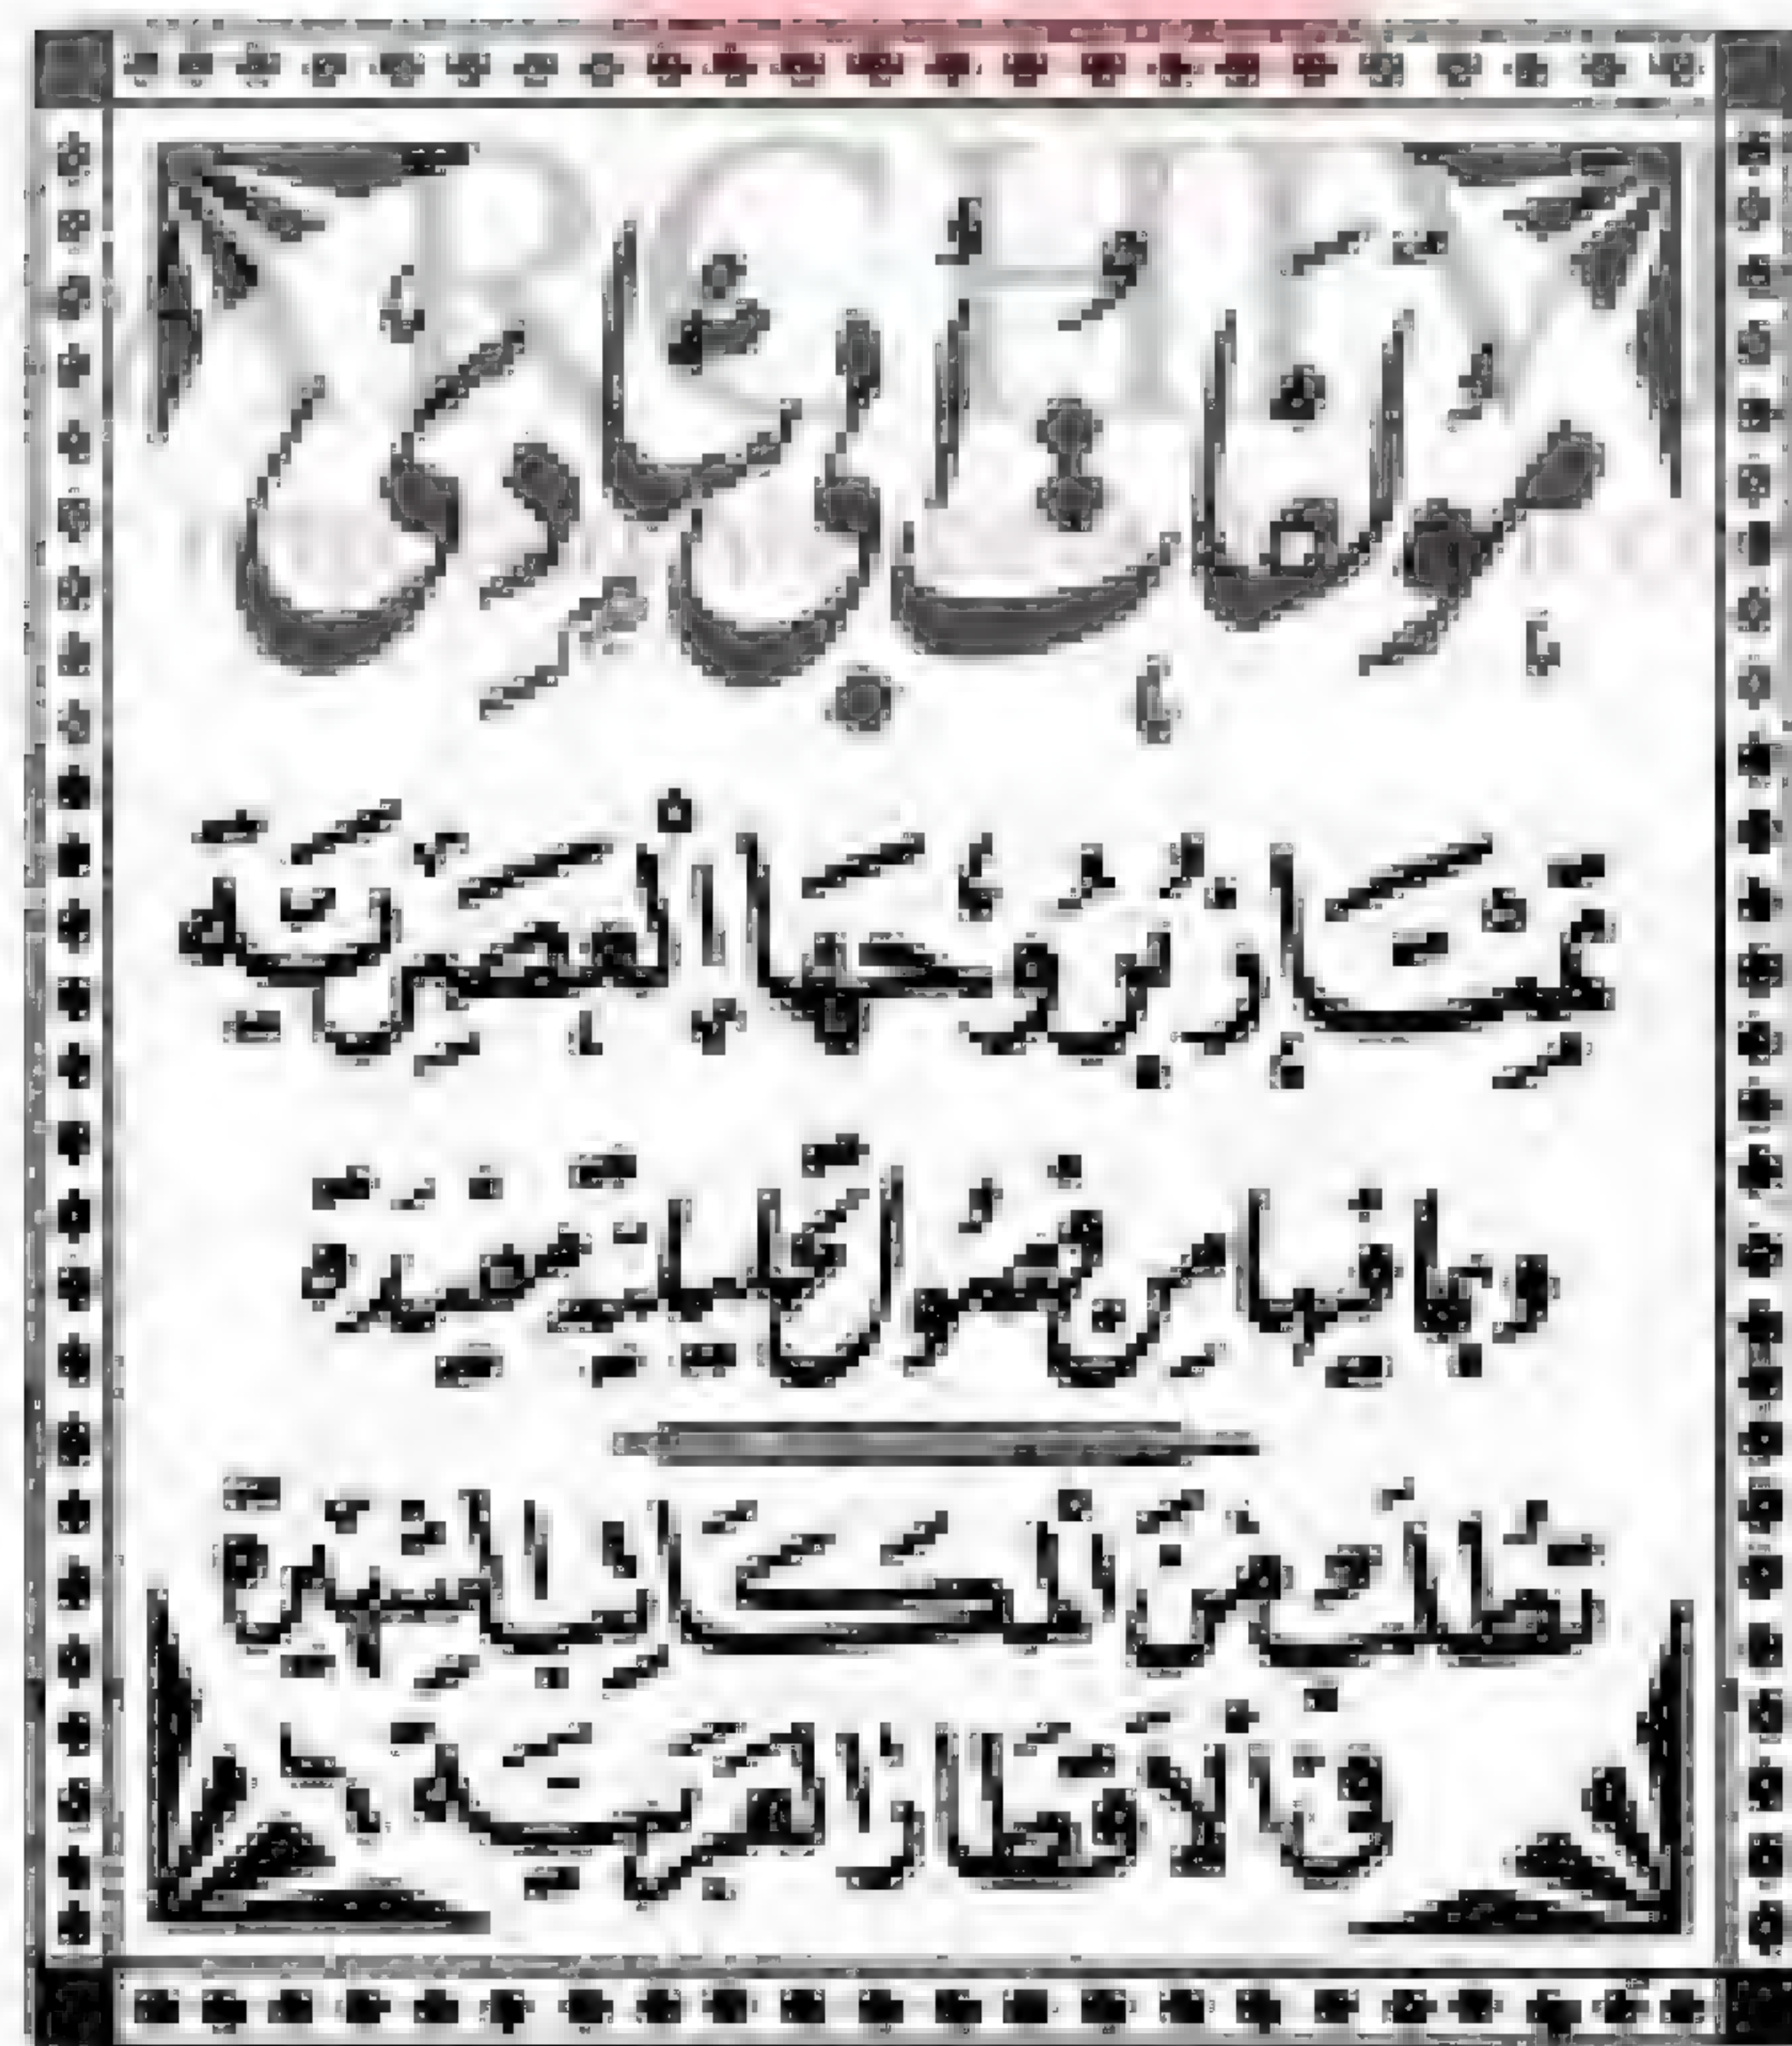 مُؤَلَّفَاتُ أَبِي شَادِي
تَمْتَازُ بِرُوحِهَا الْعَصْرِيَّة
وبما فيها من فُصُول تحليليَّة مفيدة
تُطْلَبُ مِنَ الْمَكَاتِبِ الشَّهِيرَة
في الْأَقْطَارِ الْعَرَبِيَّة